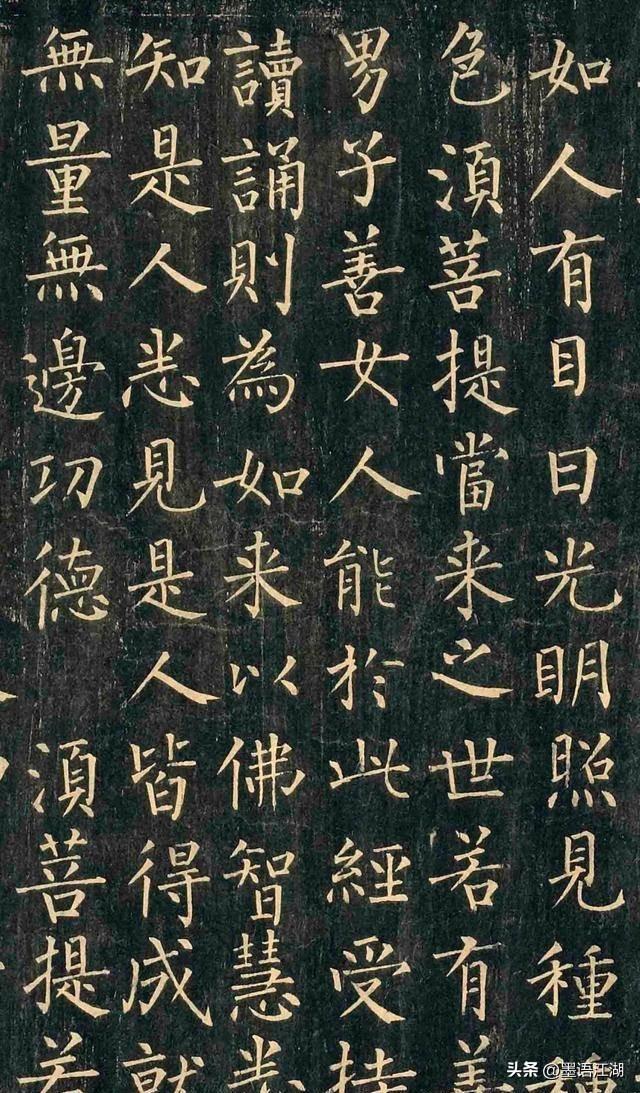 如人有目日光明照見種種
色須菩提當来之世若有善
男子善女人能於此經受持
讀誦則為如来以佛智慧悉
知是人悉見是人皆得成就
無量無邊功德 須菩提若
头条 @墨语江湖